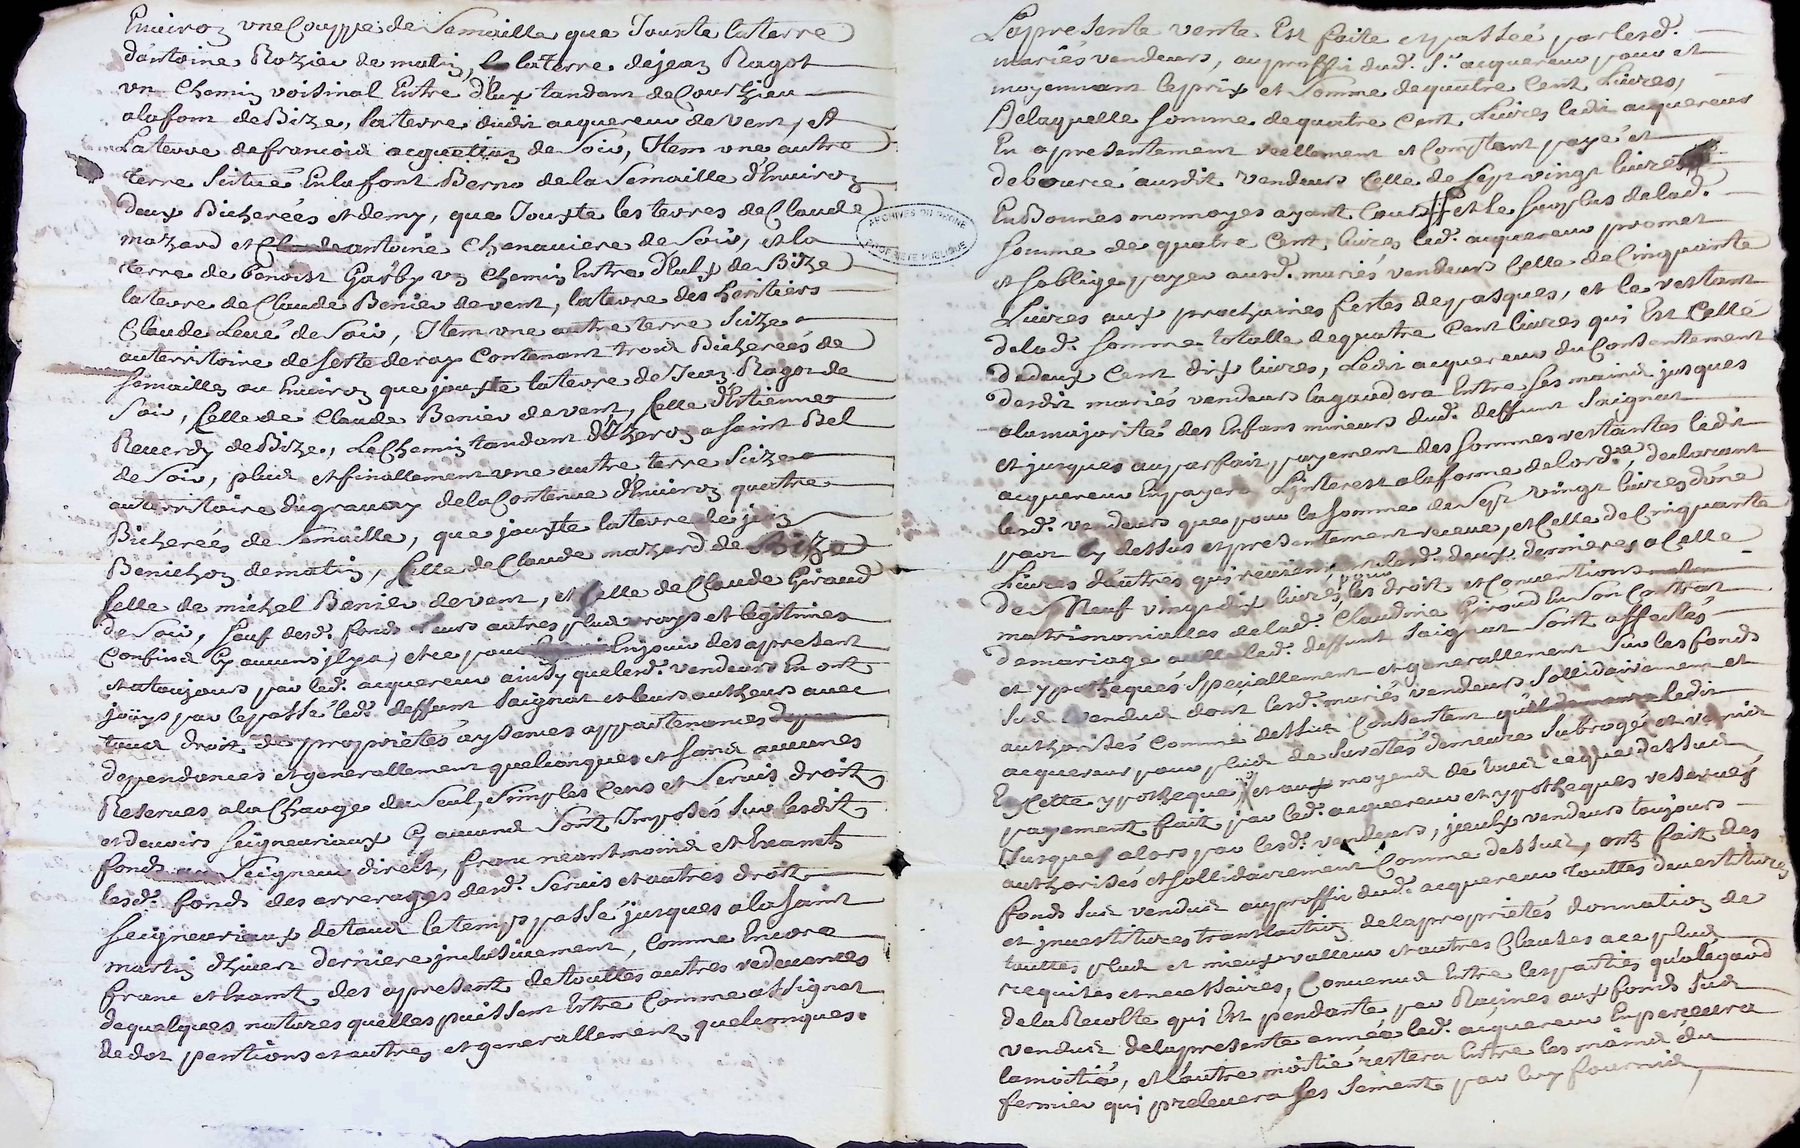 Environ une Couppe de Semaille que Jouxte la terre
d'antoine Rozier de matin, la terre de jean Ragot
un Chemin voisinal Entre d'Eux tandant de Courzieu
a la font de Bize, la terre dudit acquereur de vent, et
La terre de francois acquettan de Soir, Item une autre
terre Scituée En la font Berno de la Semaille d'Environ
deux Bicherées et demy, que Jouxte les terres de Claude
mazard et antoine Chanaviere de Soir, et la
terre de Benoist Garby un Chemin Entre d'Eulx de Bize
la terre de Claude Benier de vent, la terre des heritiers
Claude Levé de Soir, Item une autre terre Scize
au territoire de serte deray Contenant trois Bicherées de
Semailles ou Environ que jouxte la terre de Jean Ragot de
Soir, Celle de Claude Benier de vent, Celle d'Estienne
Reverdy de Bize, Le Chemin tandant d'Yzeron a Saint Bel
de Soir, plus et finallement une autre terre Scize
au territoire du gravay de la Contenue d'Environ quatre
Bicherées de Semaille, que jouxte la terre de jean
Benichon de matin, Celle de Claude mazard de Bize
Celle de michel Benier de vent, et Celle de Claude Giraud
de Soir, Sauf desd. fonds Leurs autres plus vrays et legitimes
Confins Sy aucuns il y a, et ce pour En jouir des apresent
et a toujours par led. acquereur ainsy que lesd. vendeurs En ont
joüys par le passé led. deffunt Saignat et leurs autheurs avec
tous droit de proprietés aysances appartenances
dependances et generallement quelconques et sans aucunes
Reserves a la Charge du Seul, Simples Cens et Servis droits
et devoirs Seigneuriaux Sy aucuns Sont Imposés Sur lesdit
fonds au Seigneur direct, franc neantmoins et Examts
lesd. fonds des arrerages desd. Servis et autres droits
Seigneuriaux de tous le temps passé jusques a la Saint
martin d'hiver derniere inclusivement, Comme Encore
franc et Examt des apresent de touttes autres redevances
de quelques natures quelles puissent Estre Comme assignat
de dot pentions et autres et generallement quelconques.
La presente vente Est faite et passée par lesd.
mariés vendeurs, au proffit dud. Sr. acquereur pour et
moyennant le prix et Somme de quatre Cent Livres,
De laquelle Somme de quatre Cent Livres ledit acquereur
En a presentement reellement et Comptant payé et
debourcé ausdit vendeurs Celle de Sept vingt livres
En Bonnes monnoyes ayant Cours et le Surplus de lad.
Somme de quatre Cent livres led. acquereur promet
et Soblige payer ausd. mariés vendeurs Celle de Cinquante
Livres aux prochaines festes de pasques, et le restant
de lad. Somme totalle de quatre Cent livres qui Est Celle
de deux Cent dix livres, Ledit acquereur du Consentement
desdit mariés vendeurs la gardera Entre Ses mains jusques
a la majorité des Enfans mineurs dud. deffunt Saignat
et jusques au parfait payement des Sommes restantes ledit
acquereur En payera L'interest a la forme de Lord.ce, declarant
lesd. vendeurs que pour la Somme de Sept vingt livres d'une
part Cy dessus et presentement receue, et Celle de Cinquante
Livres d'autres qui lesd. deux dernieres a Celle
de Neuf vingt dix livres, pour les droit et Conventions
matrimonialles de lad. Claudine Giroud En Son Contrat
de mariage led. deffunt Saignat Sont affectés
et ypothequés Speciallement et generallement Sur les fonds
Sus vendus dont lesd. mariés vendeurs Sollidairement et
authorisés Comme dessus Consentent ledit
acquereur pour plus de Suretés demeure Subrogé et
En Cette ypotheque et aux moyens de tous ce que dessus
payement fait par led. acquereur et ypotheques reservés
Jusques alors par lesd. vendeurs, jceulx vendeurs toujours
authorisés et Sollidairement Comme dessus, ont fait des
fonds Sus vendus au proffit dud. acquereur Touttes devestitures
et jnvestitures translation de la proprietés donnation de
touttes plus et mieux valleur et autres Clauses a ce plus
requises et necessaires, Convenus Entre les parties qu'a l'égard
de la Recolte qui Est pendante par Racines aux fonds Sus
vendus de la presente année led. acquereur En percevra
la moitié, et L'autre moitié restera Entre les mains du
fermier qui prelevera Ses Sement par luy fournis,
ARCHIVES DU RHONE
PROPRIETE PUBLIQUE